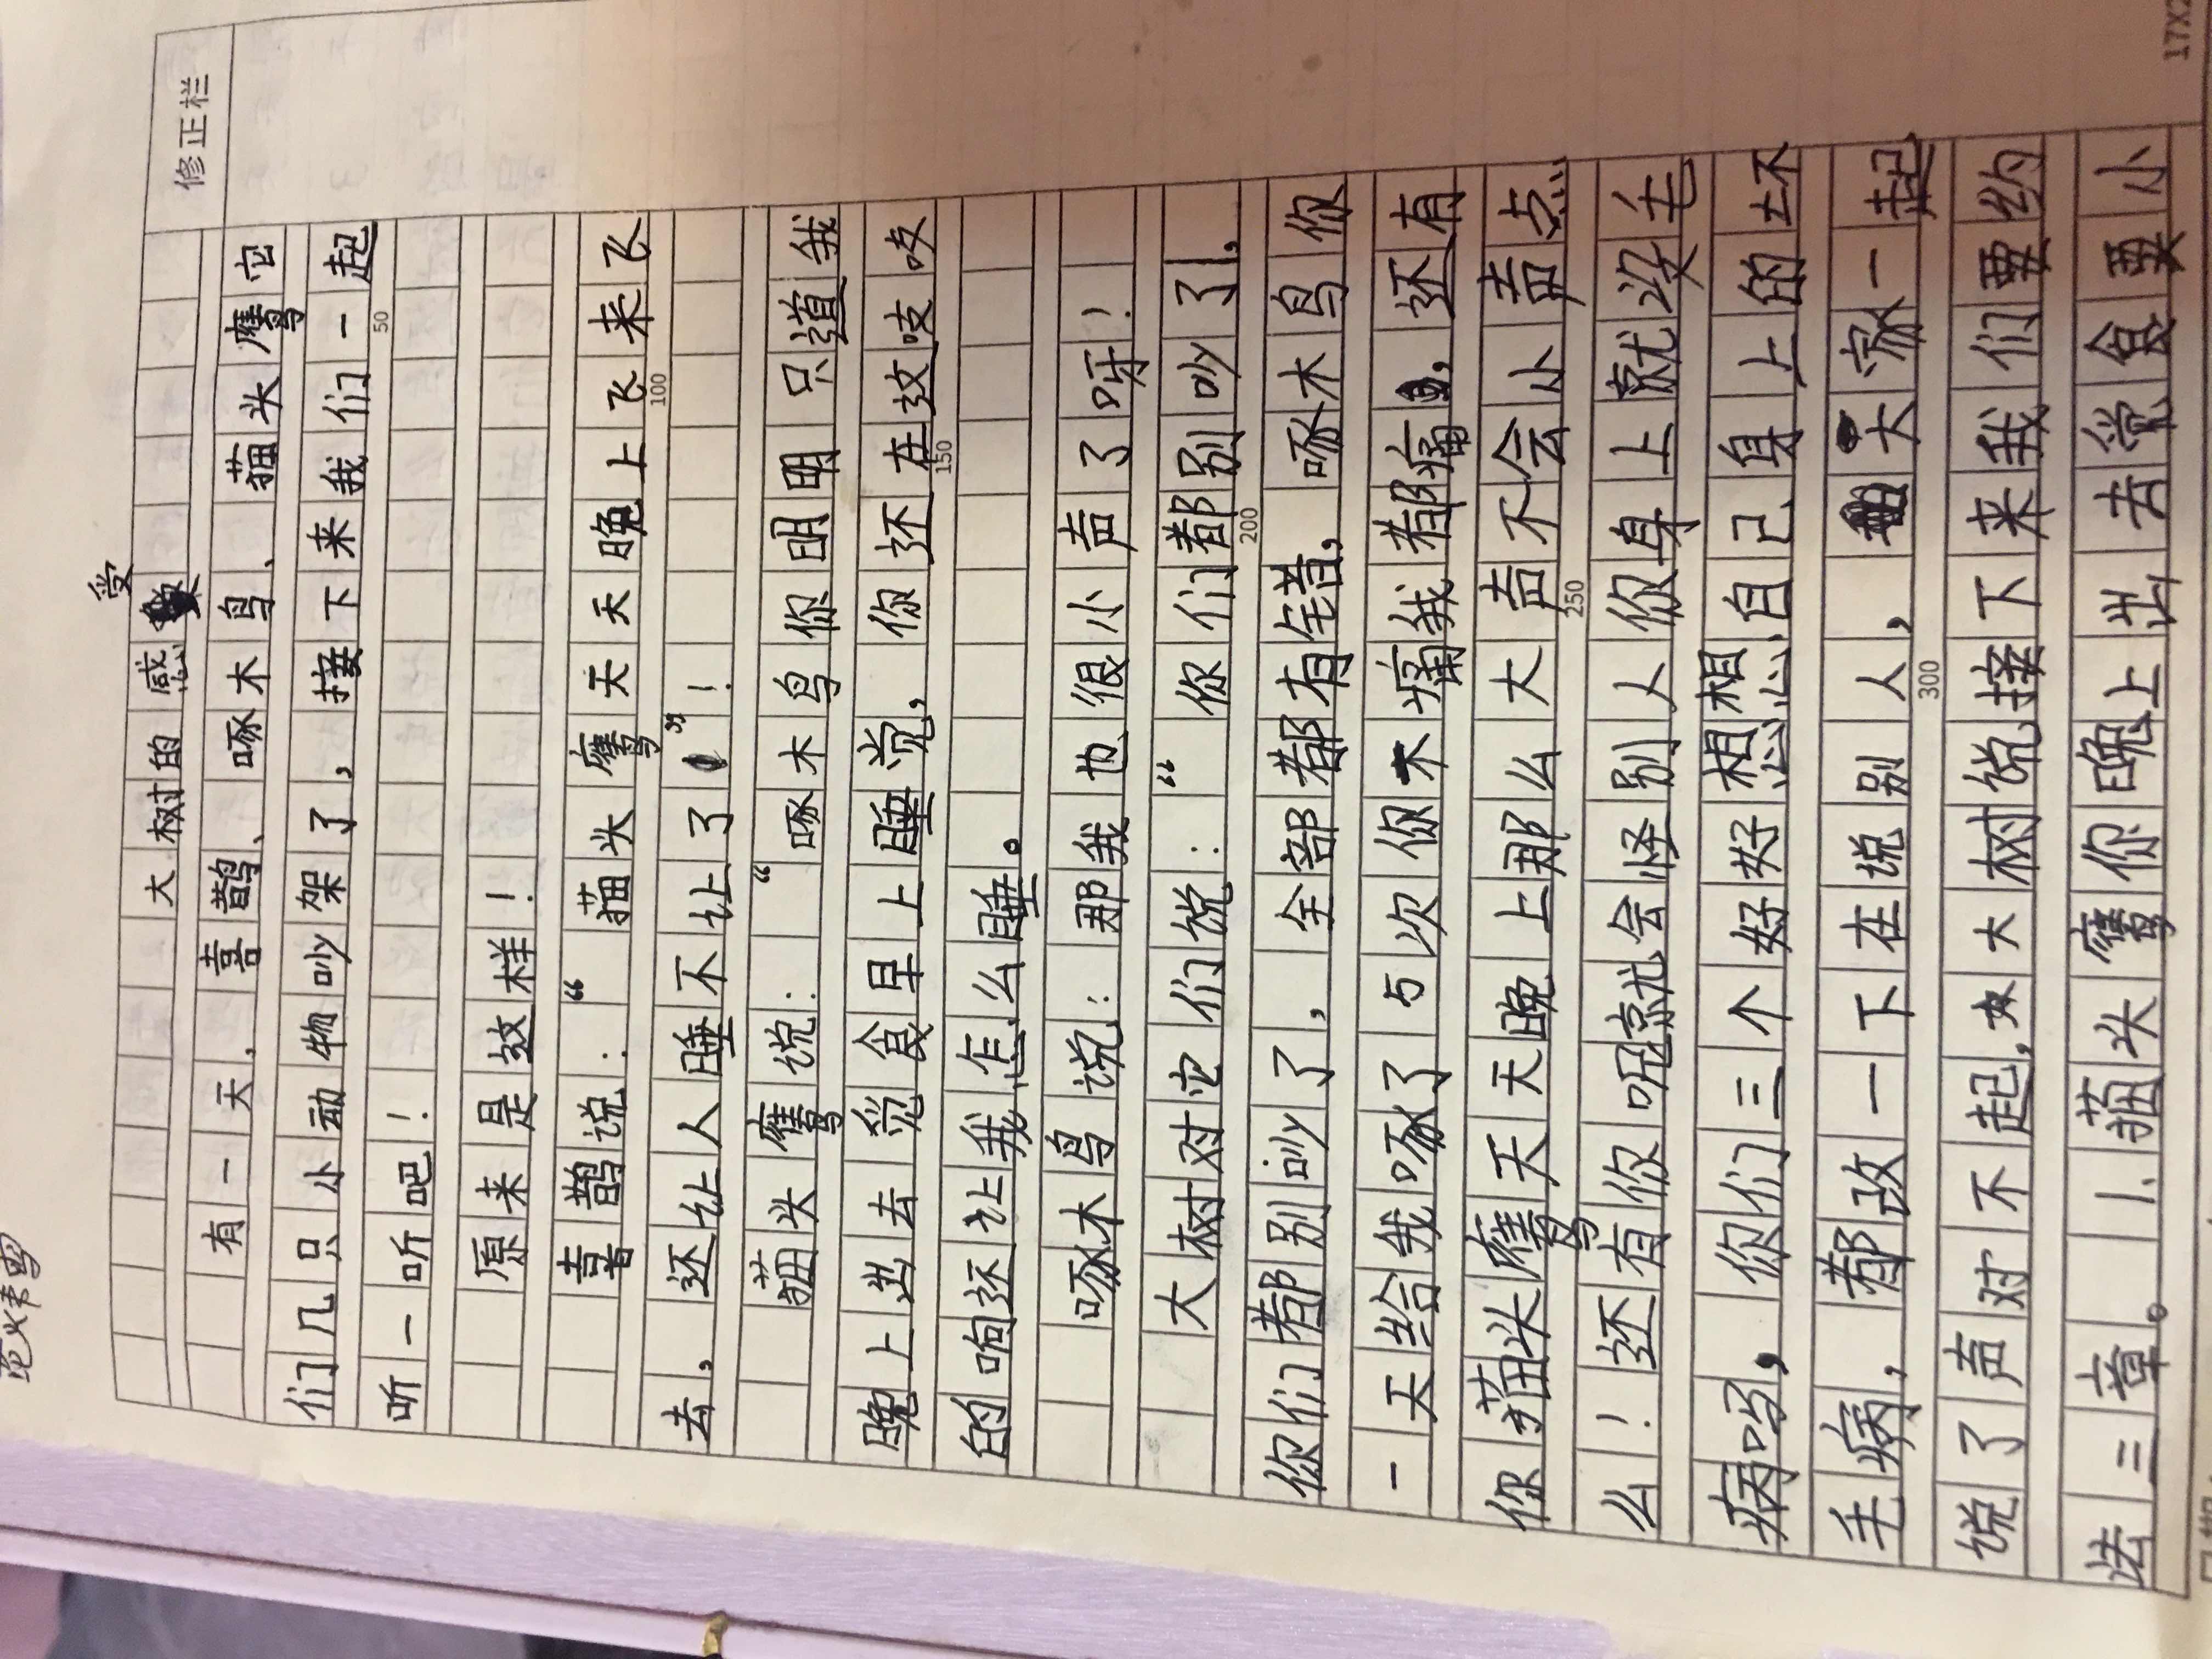 修正栏
受
大树的感
有一天，喜鹊、啄木鸟、猫头鹰它
们几只小动物吵架了，接下来我们一起
50
听一听吧！
原来是这样！
喜鹊说：“猫头鹰天天晚上飞来飞
100
去，还让人睡不让了”！
猫头鹰说：“啄木鸟你明明只道我
晚上出去觅食早上睡觉，你还在这吱吱
150
的响还让我怎么睡。
啄木鸟说：那我也很小声了呀！
大树对它们说：“你们都别吵了，
200
你们都别吵了，全部都有错，啄木鸟你
一天给我啄了5次你木痛我都痛，还有
你猫头鹰天天晚上那么大声不会小声点
250
么！还有你呪就会怪别人你身上就没毛
病吗，你们三个好好想想自己身上的坏
毛病，都改一下在说别人，大家一起
300
说了声对不起，大树说接下来我们要约
法三章。1、猫头鹰你晚上出去觉食要小
17X2